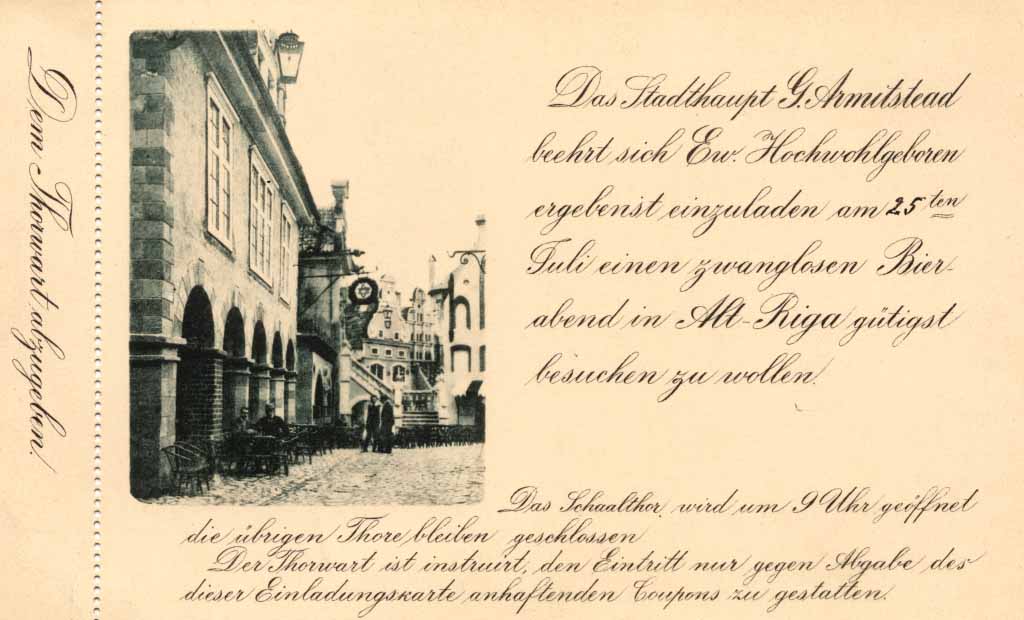 Dem Thorwart abzugeben!
Das Stadthaupt G. Armitstead
beehrt sich Ew. Hochwohlgeboren
ergebenst einzuladen am 25ten
Juli einen zwanglosen Bier-
abend in Alt-Riga gütigst
besuchen zu wollen.
Das Schaalthor wird um 9 Uhr geöffnet
die übrigen Thore bleiben geschlossen
Der Thorwart ist instruirt, den Eintritt nur gegen Abgabe des
dieser Einladungskarte anhaftenden Coupons zu gestatten.